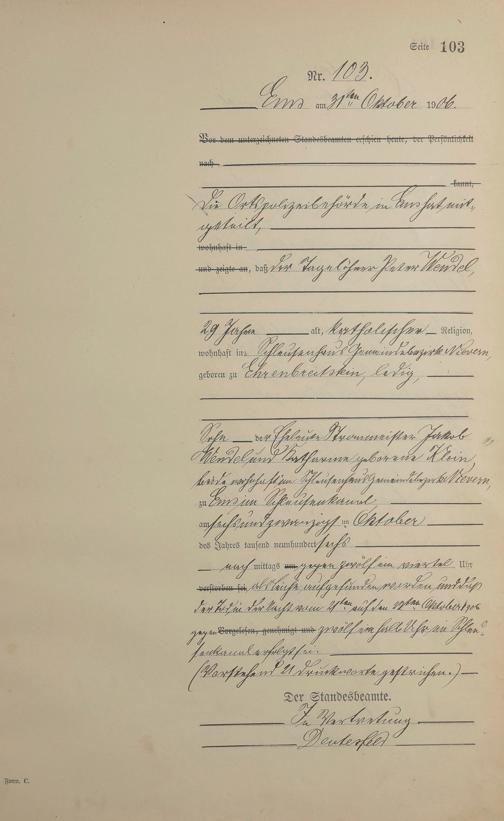 Seite 103
Nr. 103.
Ems am 31ten Oktober 1906.
Vor dem unterzeichneten Standesbeamten erschien heute, der Persönlichkeit
nach
kannt,
Die Ortspolizeibehörde in Ems hat mit-
geteilt,
wohnhaft in
und zeigte an, daß der Tagelöhner Peter Wendel,
29 Jahre alt, katholischer Religion,
wohnhaft in Schleusenhaus Gemeindebezirk Nievern,
geboren zu Ehrenbreitstein, ledig,
Sohn der Eheleute Strommeister Jakob
Wendel und Katharina geborene Klein
beide wohnhaft im Schleusenhaus Gemeindebezirk Nievern,
zu Ems im Schleusenkanal
am sechsundzwanzigsten Oktober
des Jahres tausend neunhundert sechs
nach mittags um gegen zwölf ein viertel Uhr
verstorben sei, als Leiche aufgefunden worden und daß
der Tod in der Nacht vom auf den Oktober 1906
gegen Vorgelesen, genehmigt und zwölf ein halb Uhr im Schleu-
senkanal erfolgt sei.
(Vorstehend 21 Druckworte gestrichen.)
Der Standesbeamte.
In Vertretung
Form. C.